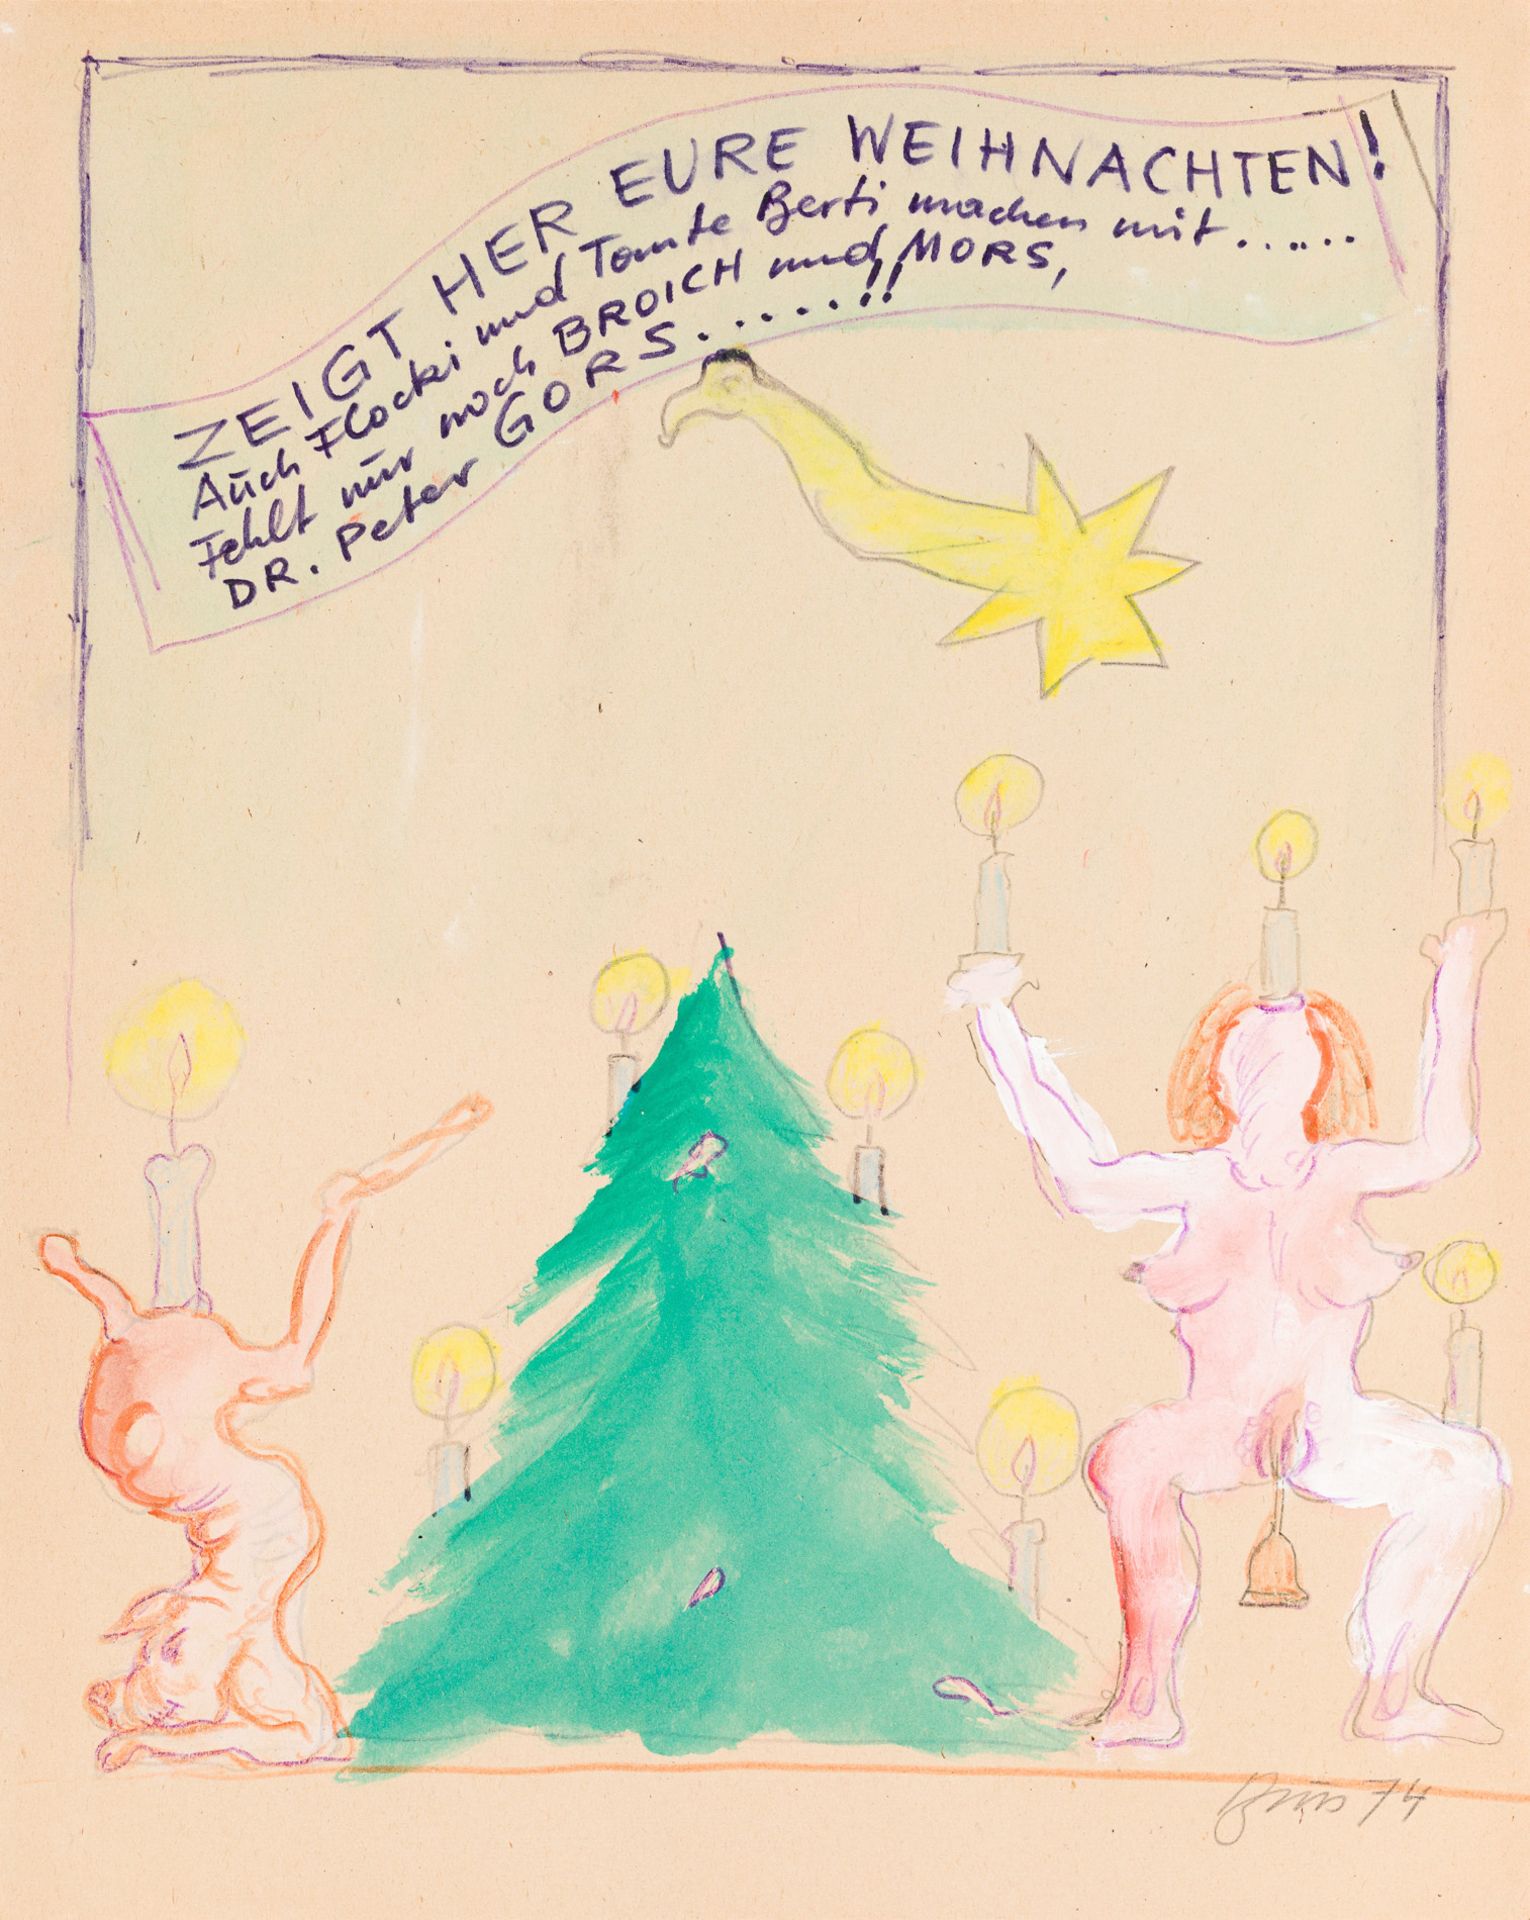 ZEIGT HER EURE WEIHNACHTEN!
Auch Flocki und Tante Berti machen mit......
Fehlt nur noch BROICH und MORS,
DR. Peter GORS......!!
Brus 74